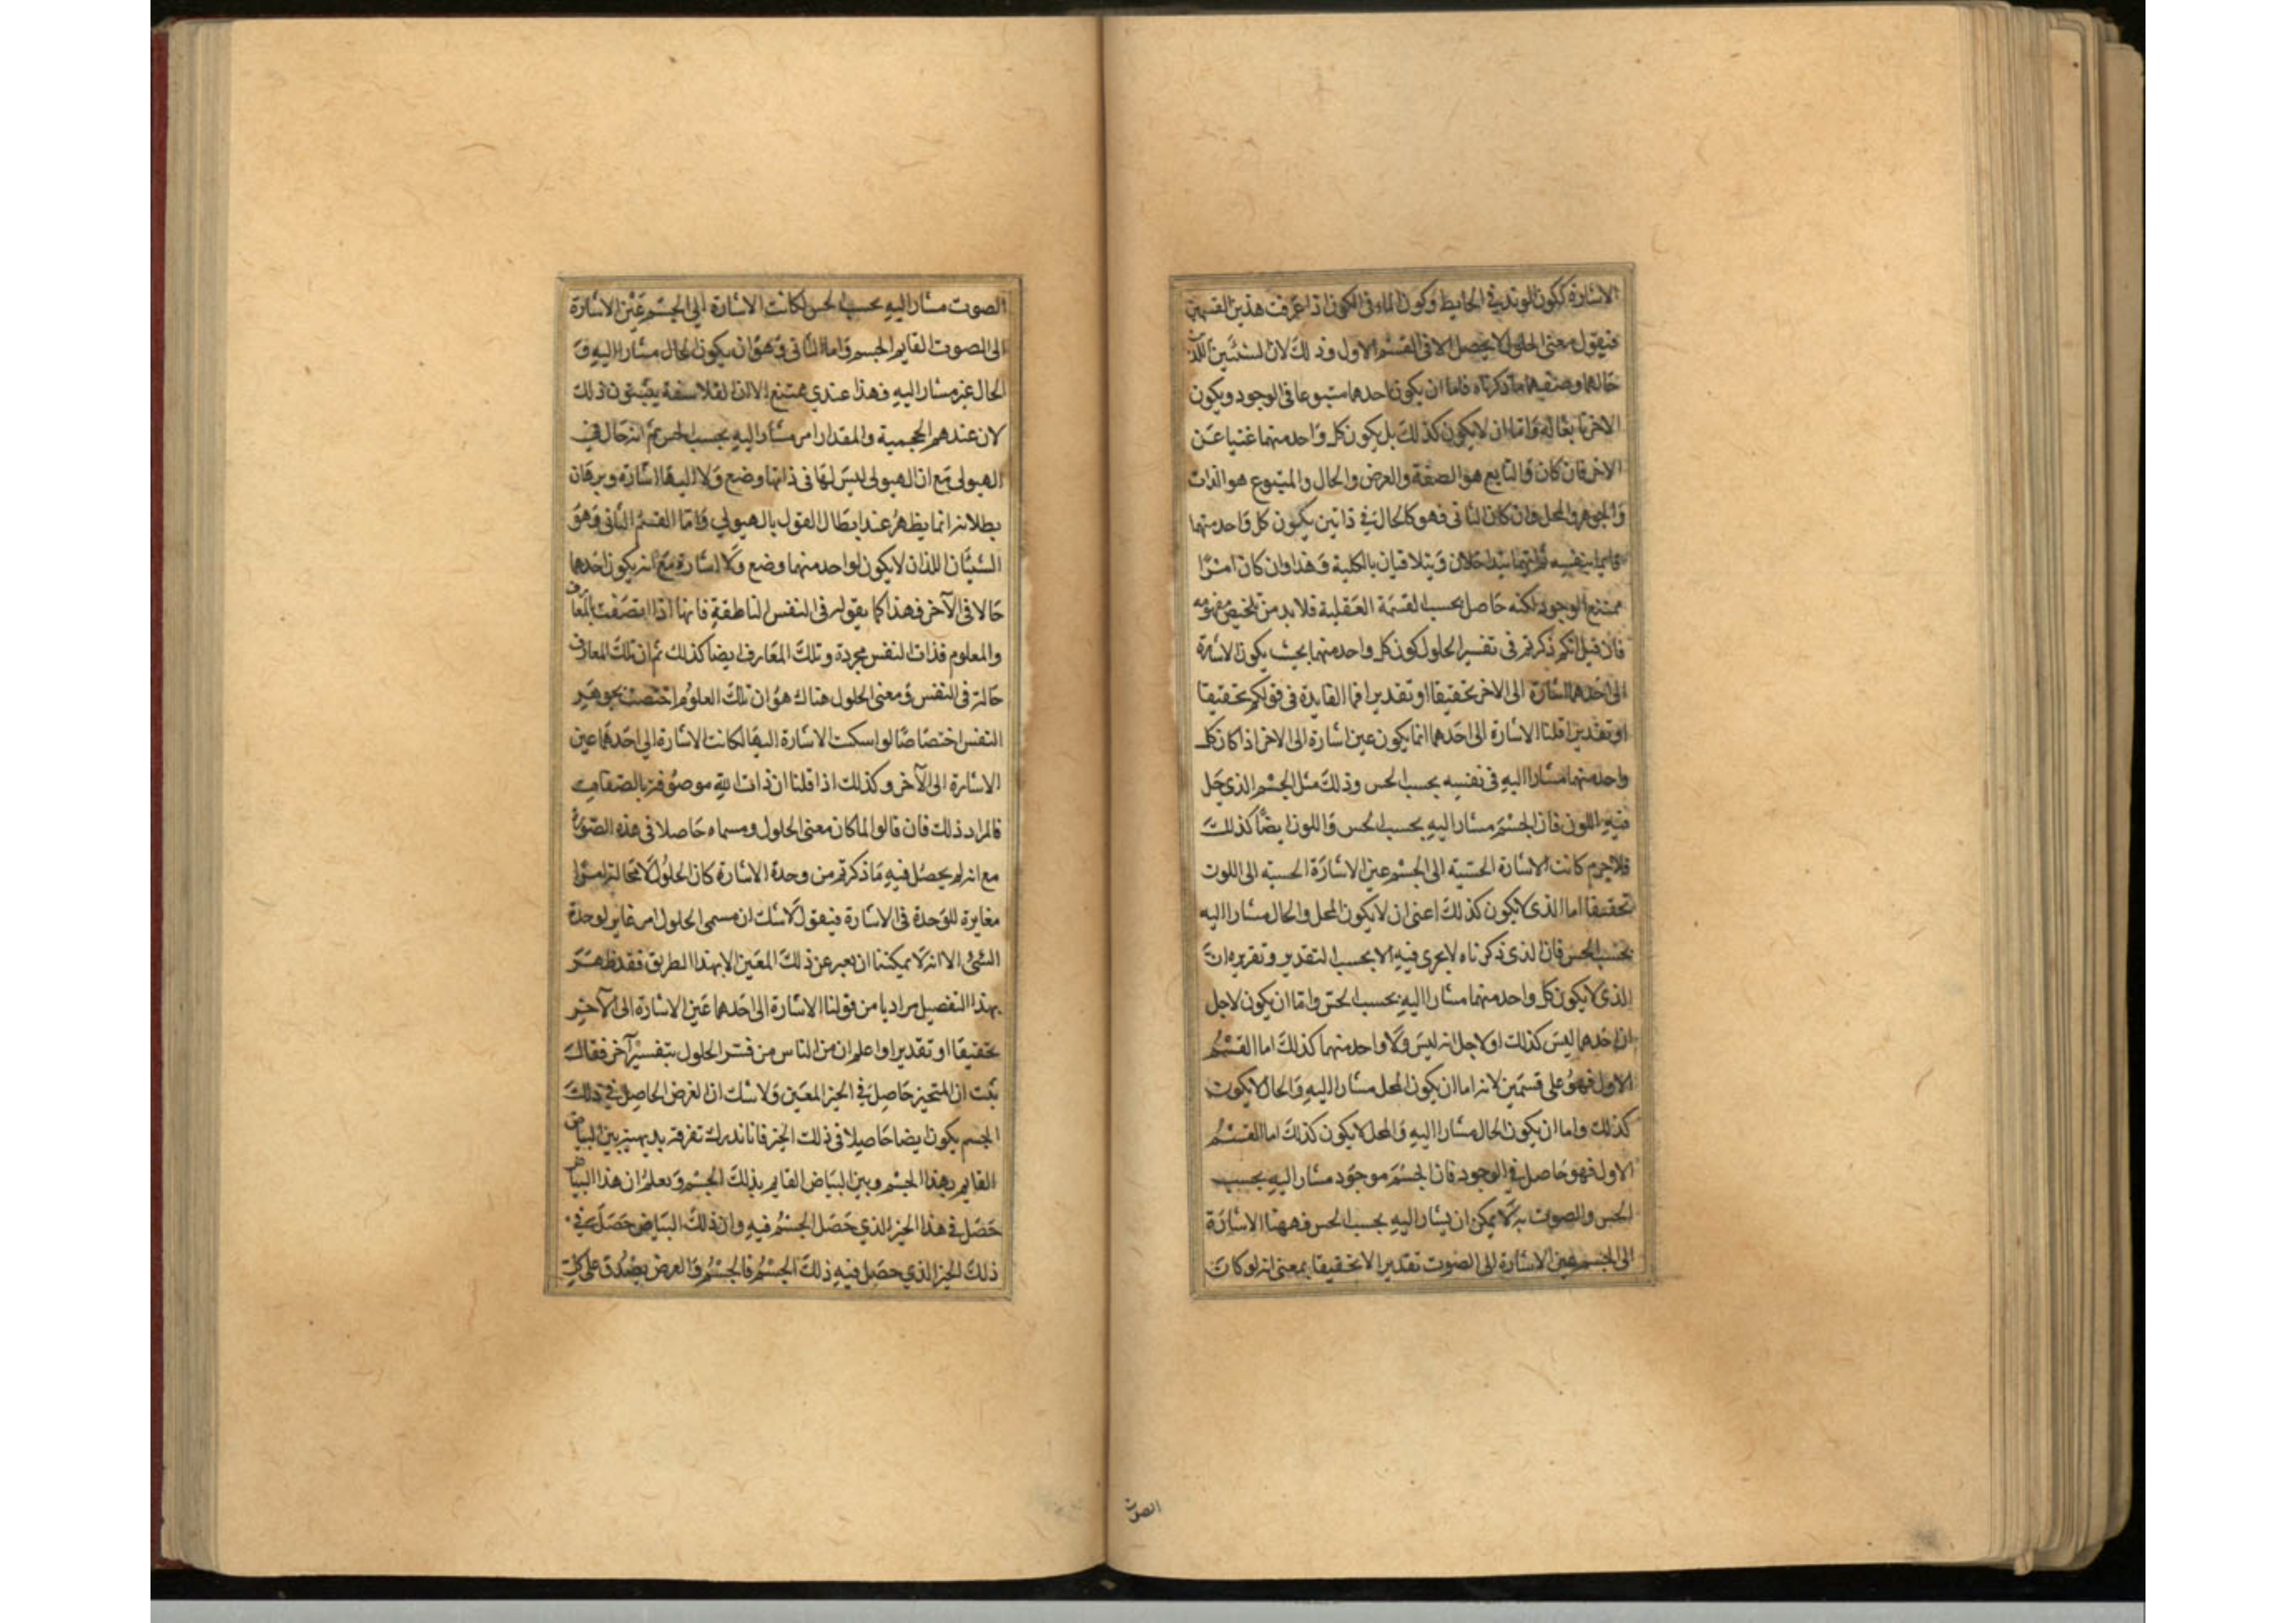 الاشارة ككون الوتد في الحايط وكون الماء في الكوز اذا عرفت هذين القسمين
فنقول معنى الحلول لا يحصل الا في القسم الاول وذلك لان الشيئين اللذين
حالهما وصفهما ما ذكرناه فاما ان يكون احدهما متبوعا في الوجود ويكون
الاخر تابعا له واما ان لا يكون كذلك بل يكون كل واحد منهما غنيا عن
الاخر فان كان فالتابع هو الصفة والعرض والحال والمتبوع هو الذات
والجوهر والمحل وان كان الثاني فهو كالحال في ذاتين يكون كل واحد منهما
قايما بنفسه ثم انهما يتداخلان ويتلاقيان بالكلية وهذا وان كان امرا
ممتنع الوجود لكنه حاصل بحسب القسمة العقلية فلا بد من تلخيص مفهومه
فان قيل انكم ذكرتم في تفسير الحلول كون كل واحد منهما بحيث يكون الاشارة
الى احدهما اشارة الى الاخر تحقيقا او تقديرا فما الفايدة في قولكم تحقيقا
او تقديرا قلنا الاشارة الى احدهما انما يكون عين اشارة الى الاخر اذا كان كل
واحد منهما مشارا اليه في نفسه بحسب الحس وذلك مثل الجسم الذي حل
فيه اللون فان الجسم مشار اليه بحسب الحس واللون ايضا كذلك
فلا جرم كانت الاشارة الحسية الى الجسم عين الاشارة الحسية الى اللون
تحقيقا اما الذي لا يكون كذلك اعني ان لا يكون المحل والحال مشارا اليه
بحسب الحس فان الذي ذكرناه لا يجري فيه الا بحسب التقدير وتقريره ان
الذي لا يكون كل واحد منهما مشارا اليه بحسب الحس واما ان يكون لاجل
ان احدهما ليس كذلك او لاجل انه ليس ولا واحد منهما كذلك اما القسم
الاول فهو على قسمين لانه اما ان يكون المحل مشارا اليه والحال لا يكون
كذلك واما ان يكون الحال مشارا اليه والمحل لا يكون كذلك اما القسم
الاول فهو حاصل في الوجود فان الجسم موجود مشار اليه بحسب
الحس والصوت به لا يمكن ان يشار اليه بحسب الحس فههنا الاشارة
الى الجسم عين الاشارة الى الصوت تقديرا لا تحقيقا بمعنى انه لو كان
الصوت
الصوت مشارا اليه بحسب الحس لكانت الاشارة الى الجسم عين الاشارة
الى الصوت القايم الجسم واما الثاني فهو ان يكون الحال مشارا اليه و
الحال غير مشار اليه فهذا عندي ممتنع الا ان الفلاسفة يثبتون ذلك
لان عندهم الحجمية والمقدار امر مشار اليه بحسب الحس ثم انه حال في
الهيولى مع ان الهيولى ليس لها في ذاتها وضع ولا اليها اشارة وبرهان
بطلانه انما يظهر عند ابطال القول بالهيولى واما القسم الثاني وهو
الشيئان اللذان لا يكون لواحد منهما وضع ولا اشارة مع انه يكون احدهما
حالا في الآخر فهذا كما يقوله في النفس الناطقة فانها اذا اتصفت بالمعارف
والمعلوم فذات النفس مجردة وتلك المعارف ايضا كذلك ثم ان تلك المعارف
حالة في النفس ومعنى الحلول هناك هو ان تلك العلوم اختصت بجوهر
النفس اختصاصا لو امكنت الاشارة اليها لكانت الاشارة الى احدهما عين
الاشارة الى الآخر وكذلك اذا قلنا ان ذات الله موصوفة بالصفات
فالمراد ذلك فان قالوا لما كان معنى الحلول ومسماه حاصلا في هذه الصورة
مع انه لم يحصل فيه ما ذكرتم من وحدة الاشارة كان الحلول لا محالة امرا
مغايرة للوحدة في الاشارة فنقول لا شك ان مسمى الحلول امر غاير لوحدة
الشي الا انه لا يمكننا ان نعبر عن ذلك المعين الا بهذا الطريق فقد ظهر
بهذا التفصيل مرادنا من قولنا الاشارة الى احدهما عين الاشارة الى الآخر
تحقيقا او تقديرا واعلم ان من الناس من فسر الحلول بتفسير آخر فقال
ثبت ان المتحيز حاصل في الحيز المعين ولا شك ان العرض الحاصل في ذلك
الجسم يكون ايضا حاصلا في ذلك الحيز فانا ندرك تفرقة بديهية بين البياض
القايم بهذا الجسم وبين البياض القايم بذلك الجسم ونعلم ان هذا البياض
حصل في هذا الحيز الذي حصل الجسم فيه وان ذلك البياض حصل في
ذلك الحيز الذي حصل فيه ذلك الجسم فالجسم والعرض يصدق على كل